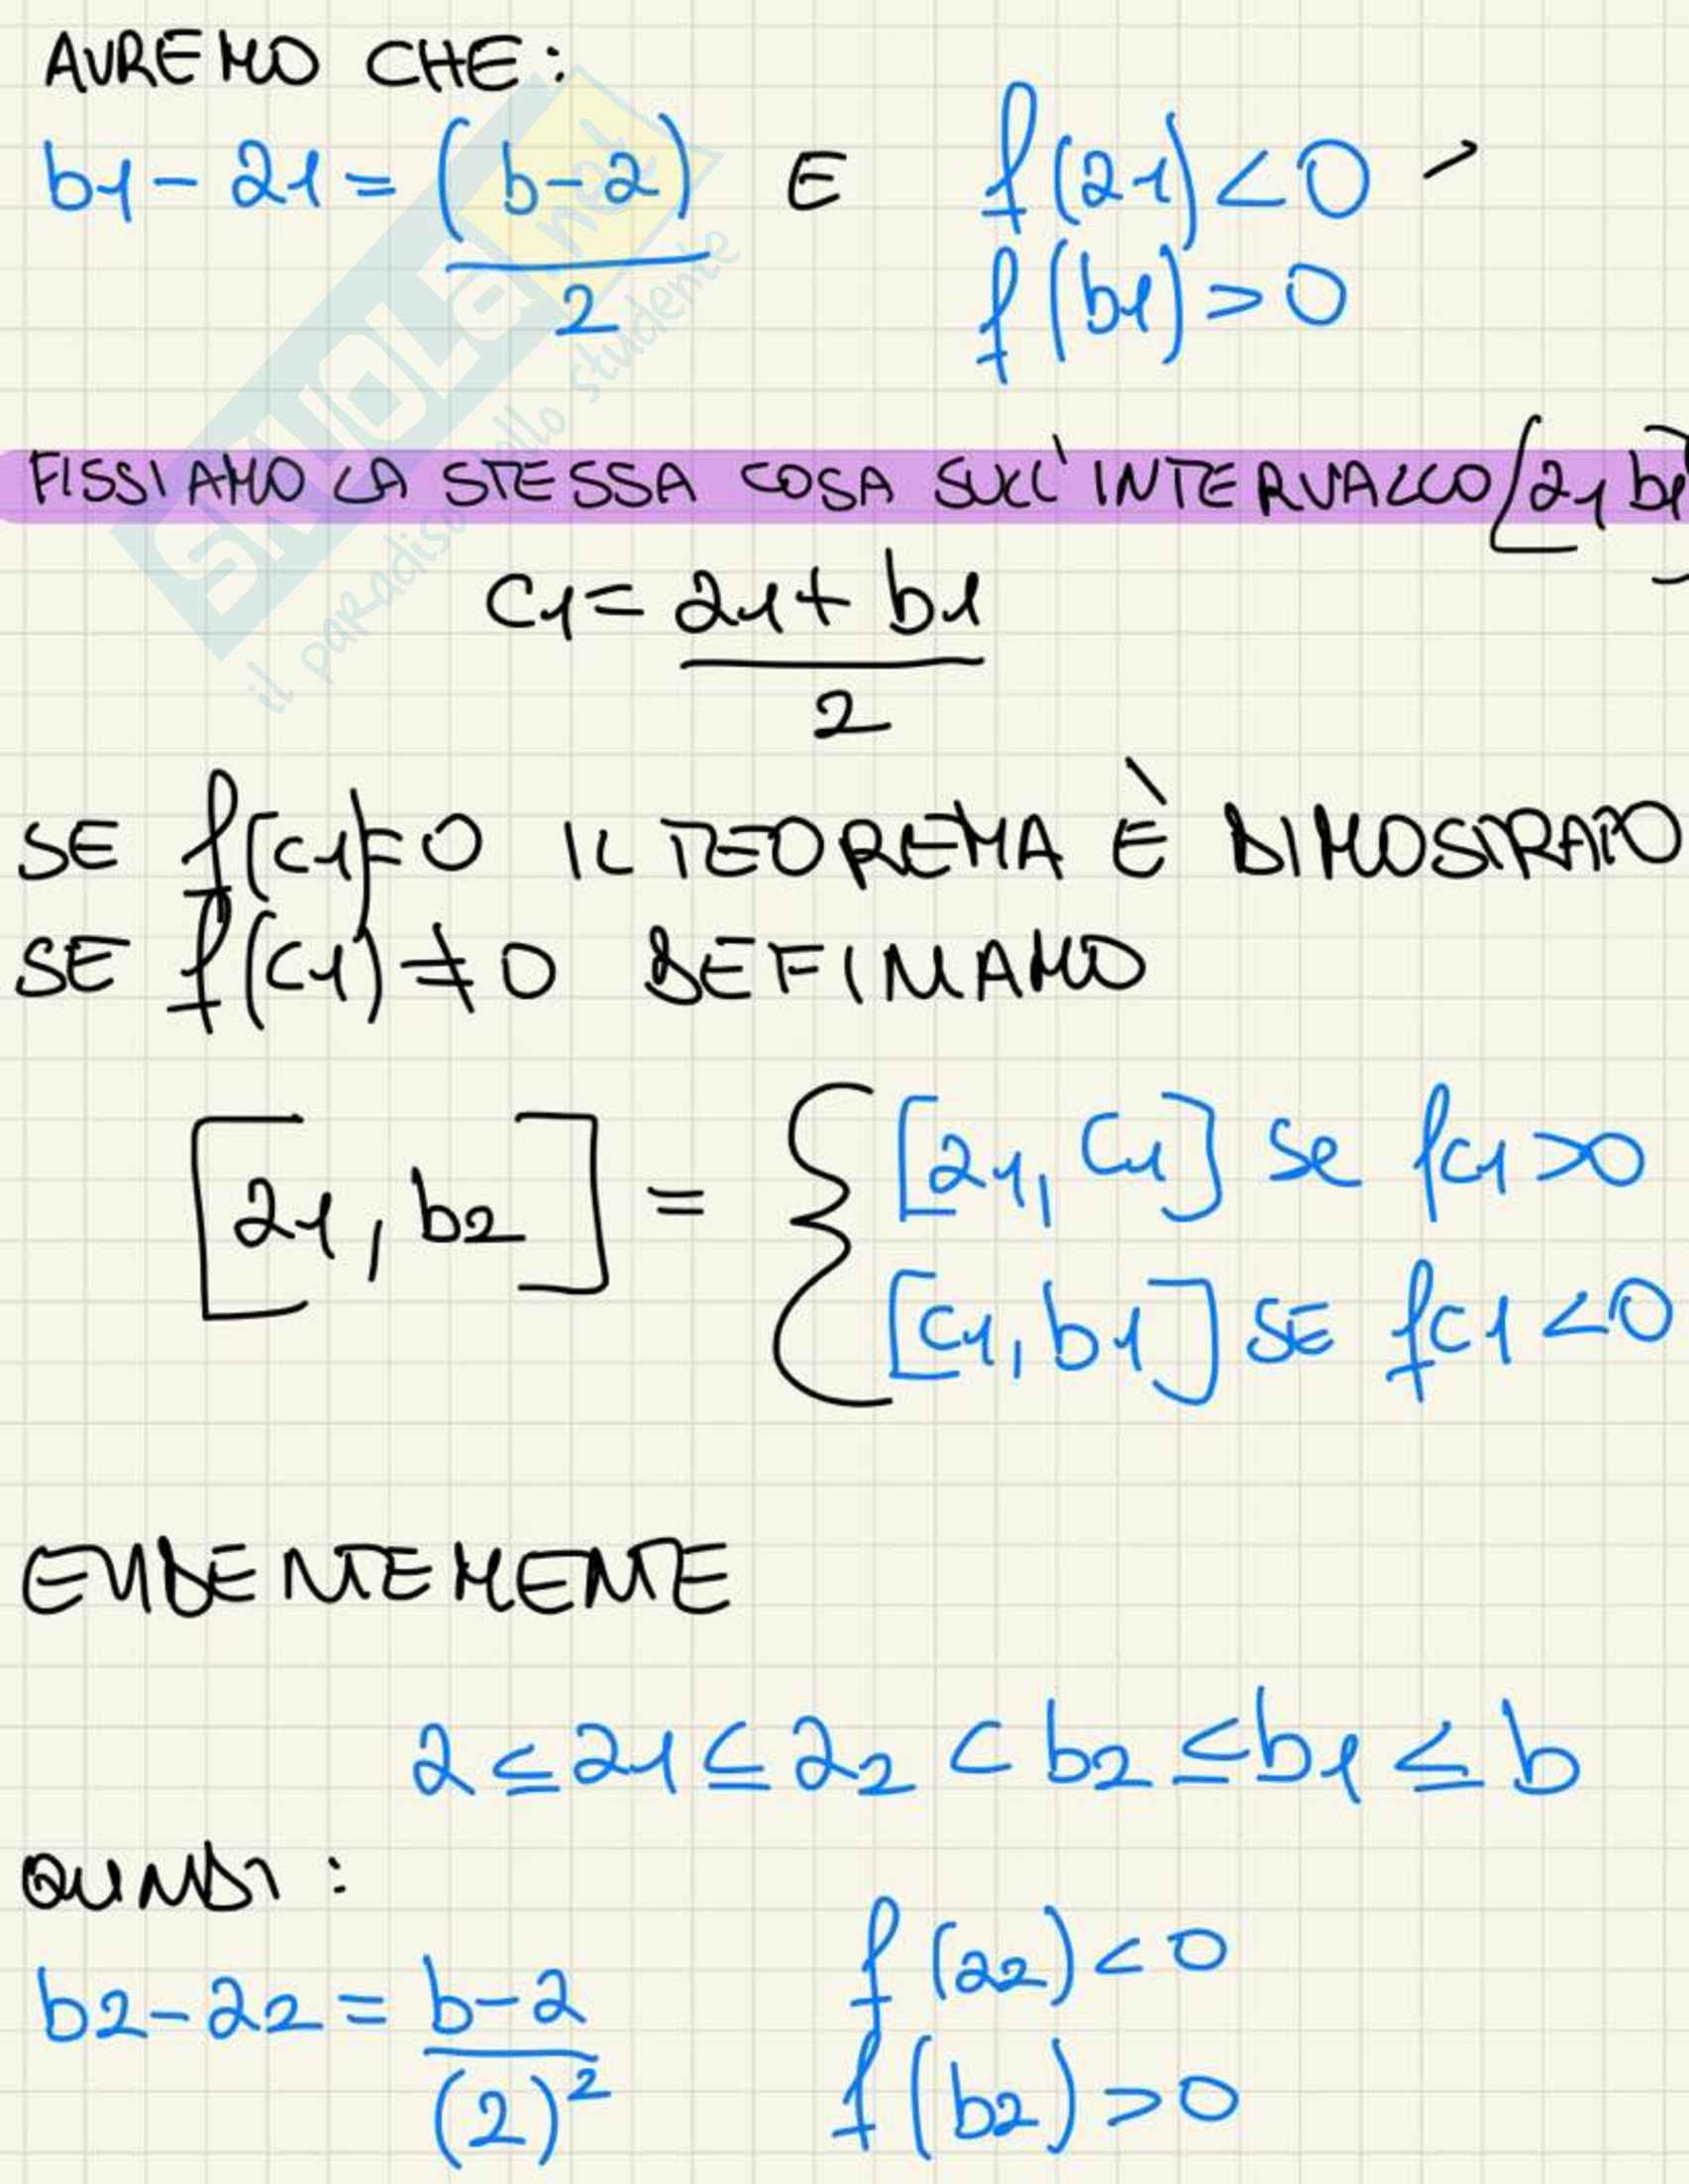 AVREMO CHE:
b1 - a1 = (b-a)/2 E f(a1) < 0
f(b1) > 0
FISSIAMO LA STESSA COSA SULL'INTERVALLO [a1 b1]
C1 = a1 + b1
2
SE f(c1) = 0 IL TEOREMA È DIMOSTRATO
SE f(c1) ≠ 0 DEFINIAMO
[a1, b2] = { [a1, C1] se fc1 > 0
[c1, b1] SE fc1 < 0
EVIDENTEMENTE
a ≤ a1 ≤ a2 < b2 ≤ b1 ≤ b
QUINDI:
b2 - a2 = b-a f(a2) < 0
(2)² f(b2) > 0
SKUOLA.net
il paradiso dello studente